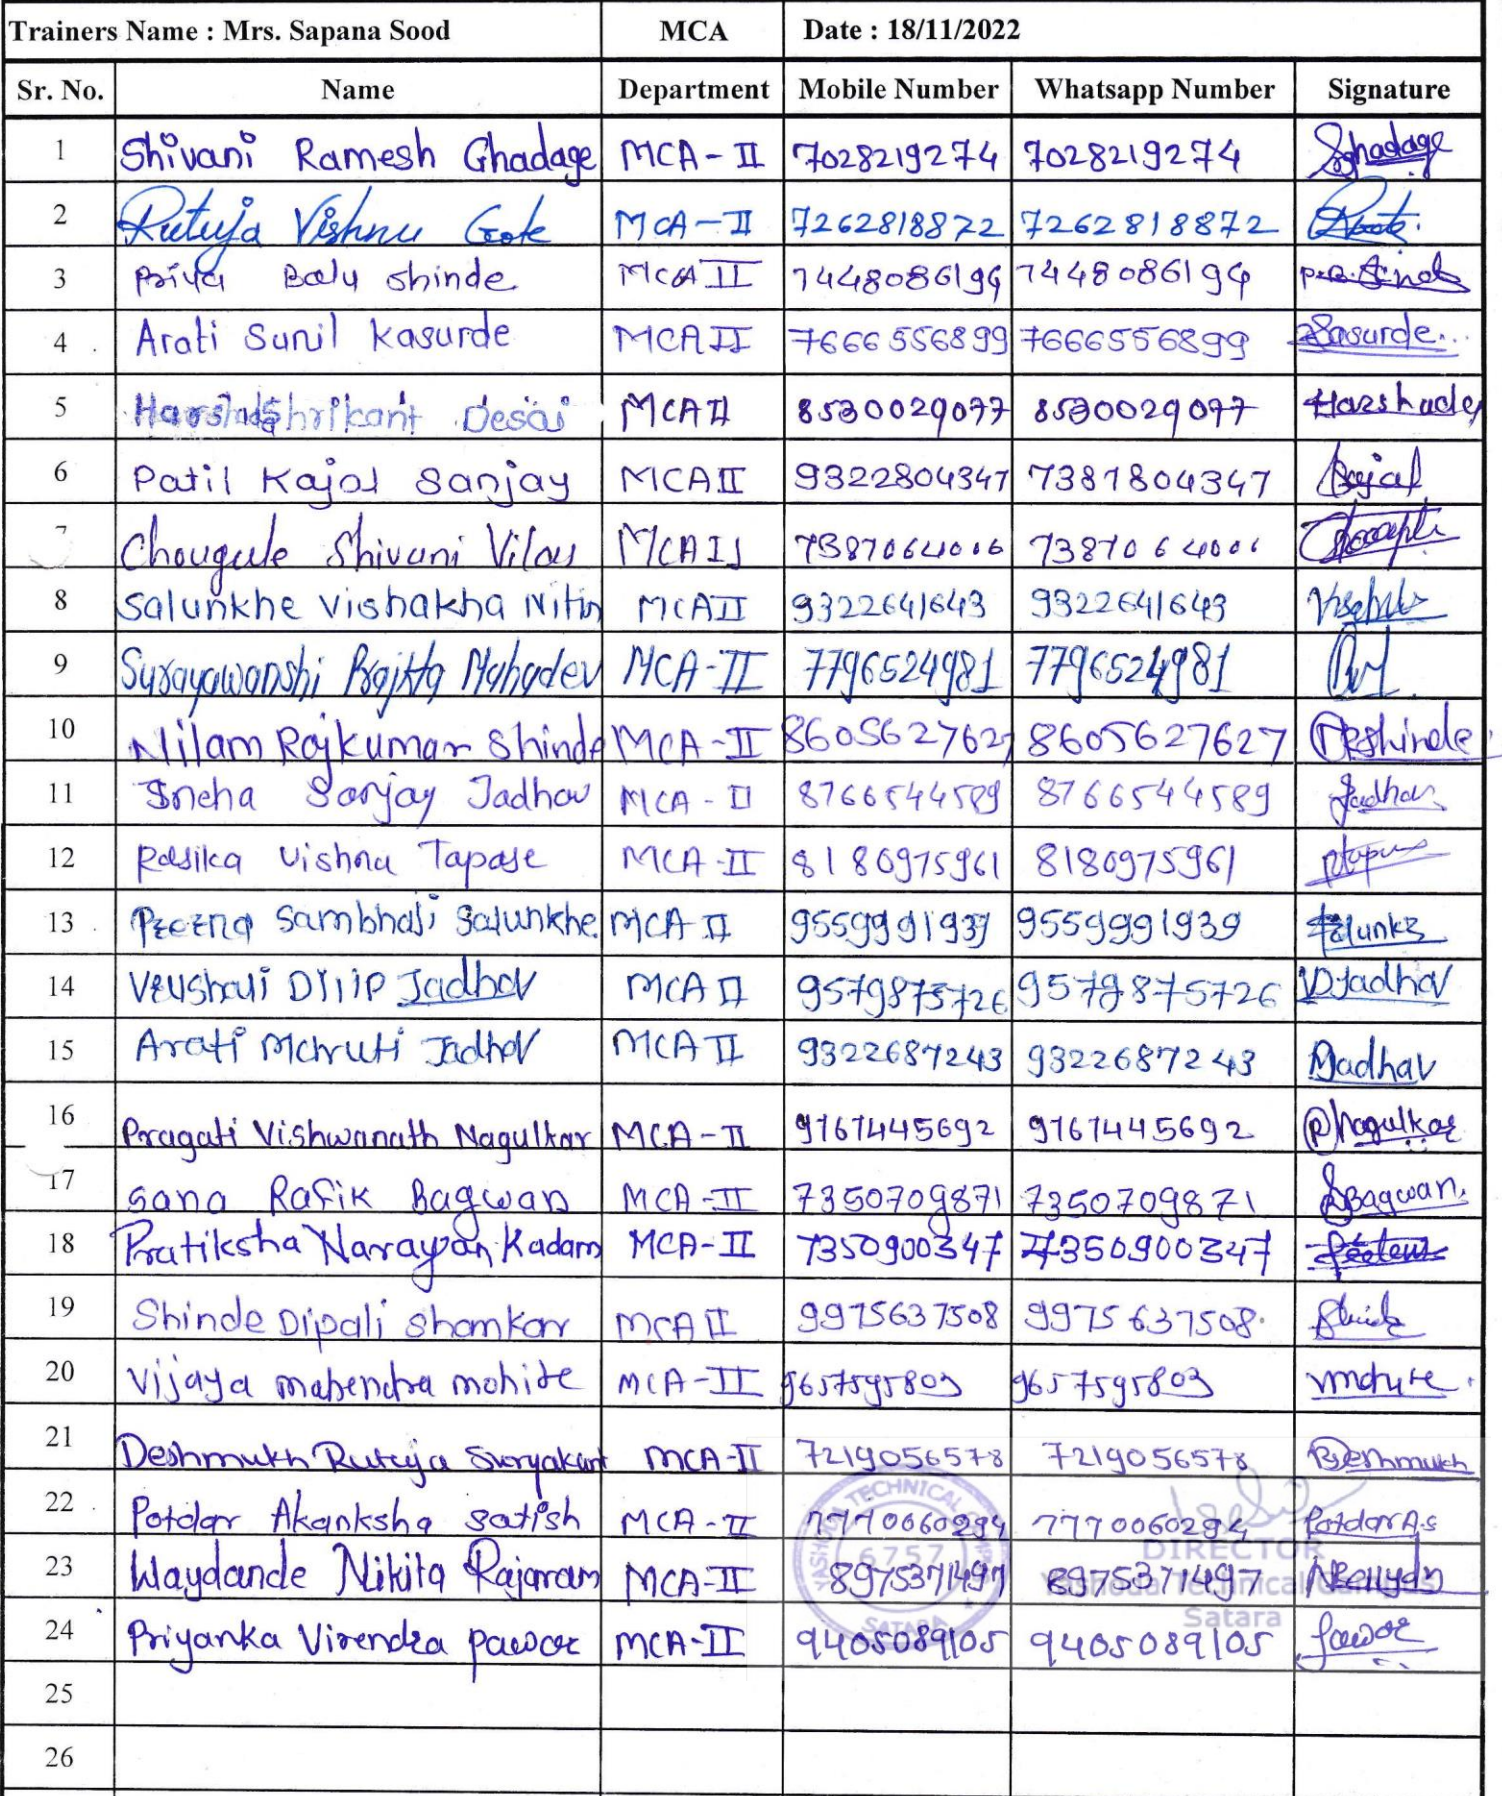 Trainers Name : Mrs. Sapana Sood MCA Date : 18/11/2022
Sr. No. Name Department Mobile Number Whatsapp Number Signature
1 Shivani Ramesh Ghadage MCA-II 7028219274 7028219274 Sghadage
2 Rutuja Vishnu Gote MCA-II 7262818872 7262818872
3 Priya Balu Shinde MCA II 7448086194 7448086194
4 Arati Sunil Kasurde MCA II 7666556899 7666556899 Kasurde
5 Harshada Shrikant Desai MCA II 8530029077 8530029077 Harshada
6 Patil Kajal Sanjay MCA II 9322804347 7387804347 Kajal
7 Chougule Shivani Vilas MCA II 7387064006 7387064006
8 Salunkhe Vishakha Nitin MCA II 9322641643 9322641643
9 Surayawanshi Prajkta Mahadev MCA-II 7796524981 7796524981
10 Nilam Rajkumar Shinde MCA-II 8605627627 8605627627 NRshinde
11 Sneha Sanjay Jadhav MCA-II 8766544589 8766544589 Jadhav
12 Rasika Vishnu Tapase MCA-II 8180975961 8180975961
13 Prerna Sambhaji Salunkhe MCA II 9559991939 9559991939
14 Vaushali Dilip Jadhav MCA II 9579875726 9579875726 VDJadhav
15 Arati Maruti Jadhav MCA II 9322687243 9322687243 AJadhav
16 Pragati Vishwanath Nagulkar MCA-II 9767445692 9767445692 PNagulkar
17 Sana Rafik Bagwan MCA-II 7350709871 7350709871 SBagwan
18 Pratiksha Narayan Kadam MCA-II 7350900347 7350900347
19 Shinde Dipali Shamkar MCA II 9975637508 9975637508
20 Vijaya mahendra mohite MCA-II 9657595803 9657595803
21 Deshmukh Rutuja Suryakant MCA-II 7219056578 7219056578 RDeshmukh
22 Potdar Akanksha Satish MCA-II 7770060294 7770060294 Potdar A.S
YASHODA TECHNICAL CAMPUS 6757 SATARA
DIRECTOR
23 Waydande Nikita Rajaram MCA-II 8975371497 8975371497
Yashoda Technical Campus
Satara
24 Priyanka Virendra Pawar MCA-II 9405089105 9405089105 Pawar
25
26